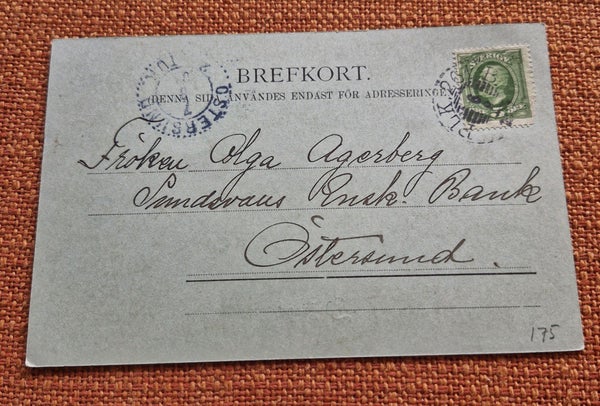 BREFKORT.
(DENNA SIDA ANVÄNDES ENDAST FÖR ADRESSERINGEN
ÖSTERSUND
SVERIGE
Fröken Olga Agerberg
Sundsvans Ensk. Bank
Östersund.
175